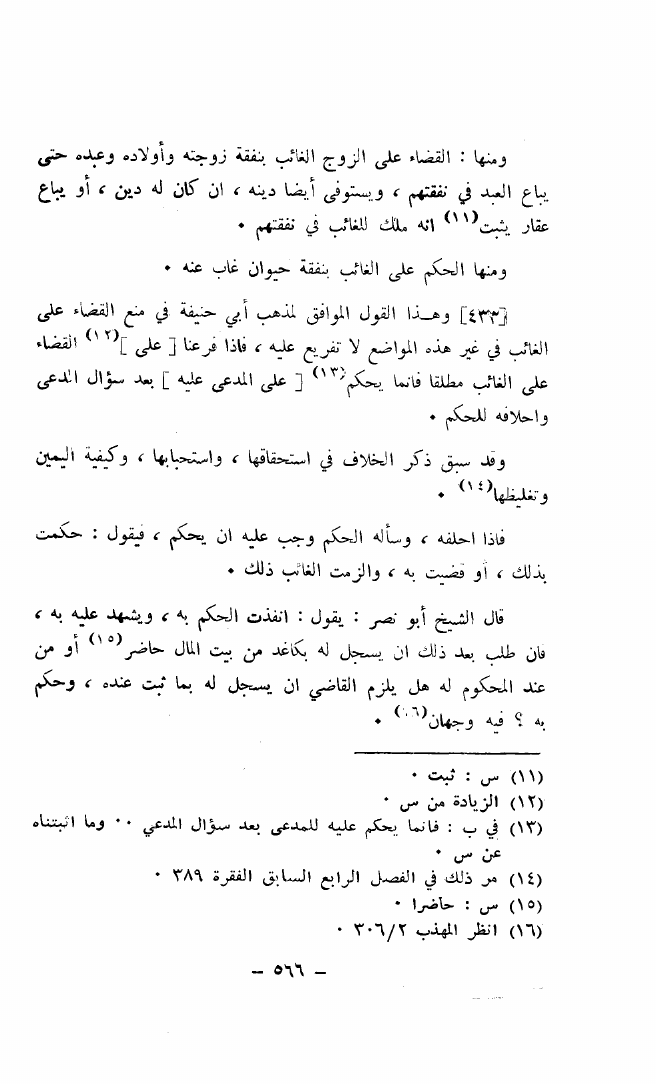 ومنها : القضاء على الزوج الغائب بنفقة زوجته وأولاده وعبده حتى
يباع العبد في نفقتهم ، ويستوفى أيضا دينه ، ان كان له دين ، أو يباع
عقار يثبت(١١) انه ملك للغائب في نفقتهم ٠
ومنها الحكم على الغائب بنفقة حيوان غاب عنه ٠
[٤٣٣] وهـذا القول الموافق لمذهب أبي حنيفة في منع القضاء على
الغائب في غير هذه المواضع لا تفريع عليه ، فاذا فرعنا [ على ](١٢) القضاء
على الغائب مطلقا فانما يحكم(١٣) [ على المدعى عليه ] بعد سؤال المدعى
واحلافه للحكم ٠
وقد سبق ذكر الخلاف في استحقاقها ، واستحبابها ، وكيفية اليمين
وتغليظها(١٤) ٠
فاذا احلفه ، وسأله الحكم وجب عليه ان يحكم ، فيقول : حكمت
بذلك ، أو قضيت به ، والزمت الغائب ذلك ٠
قال الشيخ أبو نصر : يقول : انفذت الحكم به ، ويشهد عليه به ،
فان طلب بعد ذلك ان يسجل له بكاغد من بيت المال حاضر(١٥) أو من
عند المحكوم له هل يلزم القاضي ان يسجل له بما ثبت عنده ، وحكم
به ؟ فيه وجهان(١٦) ٠
(١١) س : ثبت ٠
(١٢) الزيادة من س ٠
(١٣) في ب : فانما يحكم عليه للمدعى بعد سؤال المدعي ٠٠ وما اثبتناه
عن س ٠
(١٤) مر ذلك في الفصل الرابع السابق الفقرة ٣٨٩ ٠
(١٥) س : حاضرا ٠
(١٦) انظر المهذب ٣٠٦/٢ ٠
– ٥٦٦ –